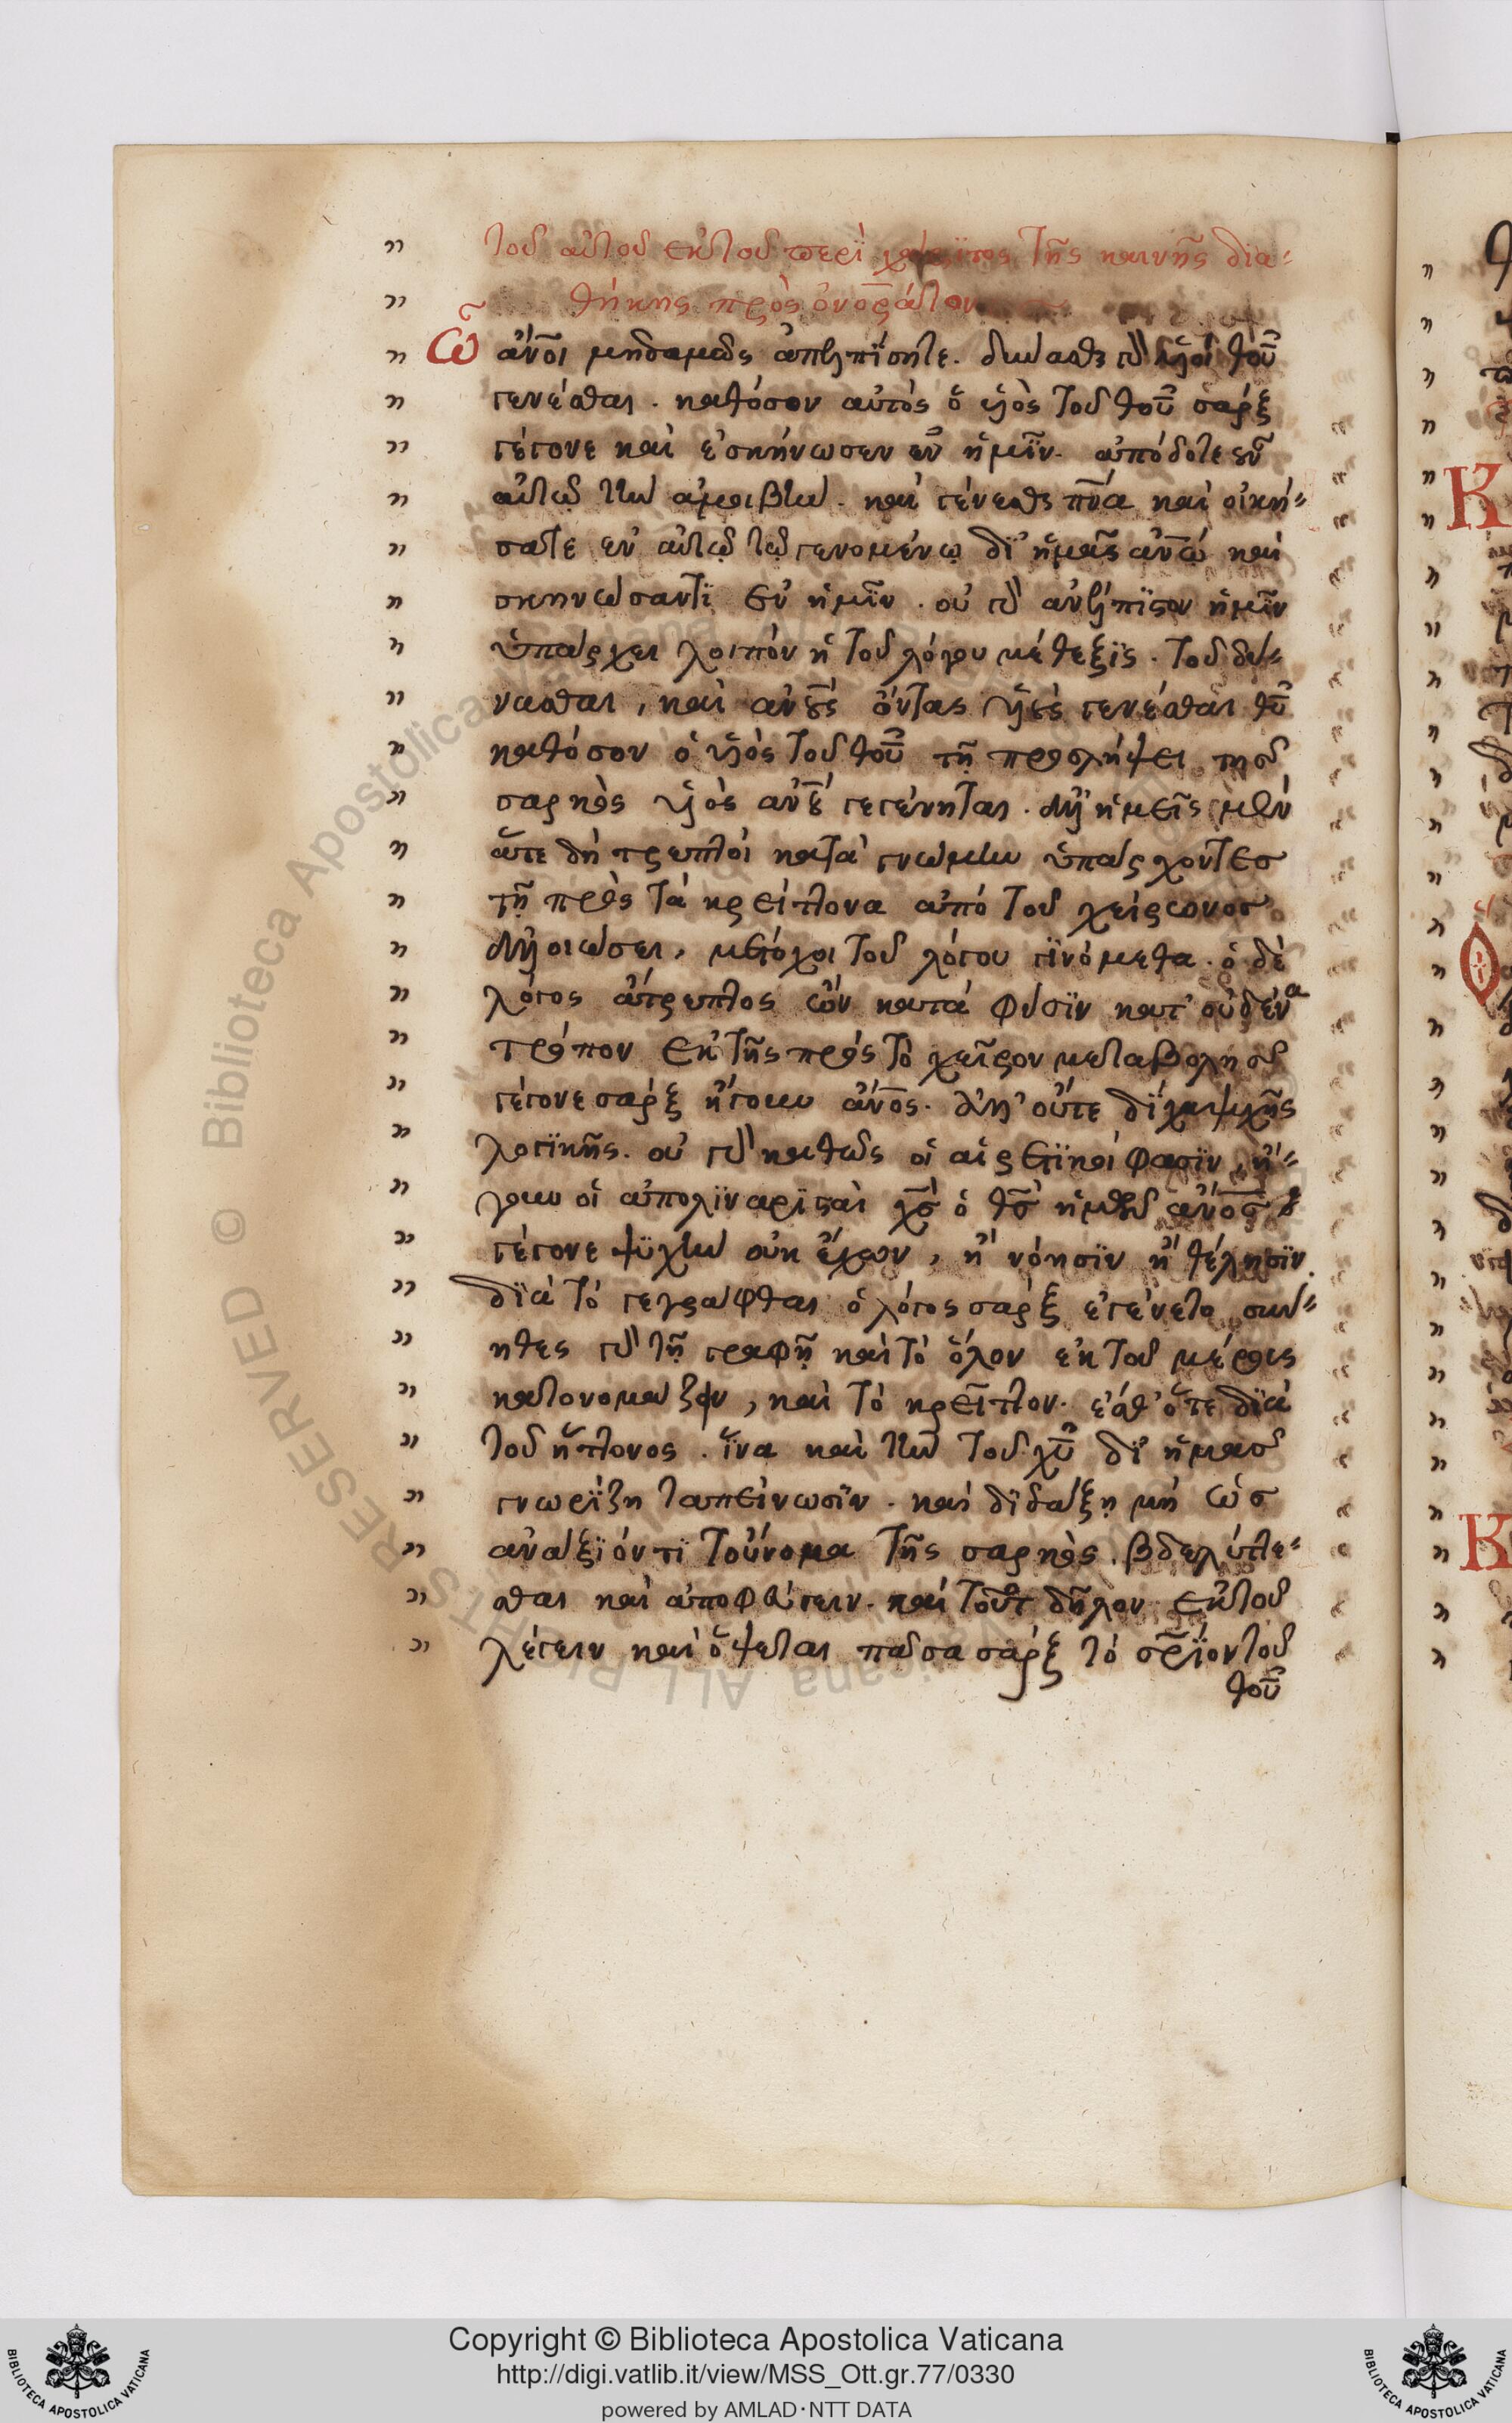 τοῦ αὐτοῦ ἐκ τοῦ περὶ χάριτος τῆς καινῆς δια-
θήκης πρὸς ὀνορᾶτον
Ὦ ἄν̅οι μηδαμῶς ἀπελπίσητε. δύνασθε γὰρ υἱοὶ θ̅υ̅
γενέσθαι. καθόσον αὐτὸς ὁ υἱὸς τοῦ θ̅υ̅ σὰρξ
γέγονε καὶ ἐσκήνωσεν ἐν ἡμῖν. ἀπόδοτε οὖν
αὐτῷ τὴν ἀμοιβὴν. καὶ γένεσθε πν̅α καὶ οἰκή-
σατε ἐν αὐτῷ τῷ γενομένῳ δι' ἡμᾶς ἀν̅ω καὶ
σκηνώσαντι ἐν ἡμῖν. οὐ γὰρ ἀνέλπιστον ἡμῖν
ὑπάρχει λοιπὸν ἡ τοῦ λόγου μέθεξις. τοῦ δύ-
νασθαι, καὶ ἀν̅ους ὄντας υἱοὺς γενέσθαι θ̅υ̅
καθόσον ὁ υἱὸς τοῦ θ̅υ̅ τῇ προσλήψει τῆς
σαρκὸς υἱὸς ἀν̅ου γεγένηται. ἀλλ' ἡμεῖς μὲν
ἅτε δὴ τρεπτοὶ κατὰ γνώμην ὑπάρχοντες
τῇ πρὸς τὰ κρείττονα ἀπὸ τοῦ χείρονος
ἀλλοιώσει, μέτοχοι τοῦ λόγου γινόμεθα. ὁ δὲ
λόγος ἄτρεπτος ὢν κατὰ φύσιν κατ' οὐδένα
τρόπον ἐκ τῆς πρὸς τὸ χεῖρον μεταβολῆς
γέγονε σὰρξ ἤγουν ἄν̅ος. ἀλλ' οὔτε δίχα ψυχῆς
λογικῆς. οὐ γὰρ καθὼς οἱ αἱρετικοί φασιν, ἤ-
γουν οἱ ἀπολιναρισταὶ χ̅ς̅ ὁ θ̅ς̅ ἡμῶν ἄν̅ος
γέγονε ψυχὴν οὐκ ἔχων, ἢ νόησιν ἢ θέλησιν.
διὰ τὸ γεγράφθαι ὁ λόγος σὰρξ ἐγένετο σύν-
ηθες γὰρ τῇ γραφῇ καὶ τὸ ὅλον ἐκ τοῦ μέρους
κατονομάζειν, καὶ τὸ κρεῖττον. ἔσθ' ὅτε διὰ
τοῦ ἥττονος. ἵνα καὶ τὴν τοῦ χ̅υ̅ δι' ἡμᾶς
γνωρίζη ταπείνωσιν. καὶ διδάξῃ μὴ ὡς
ἀναξιόν τι τοὔνομα τῆς σαρκὸς. βδελύττε-
σθαι καὶ ἀποφεύγειν. καὶ τοῦτο δῆλον ἐκ τοῦ
λέγειν καὶ ὄψεται πᾶσα σὰρξ τὸ σρ̅ιον τοῦ
θ̅υ̅
Copyright © Biblioteca Apostolica Vaticana
http://digi.vatlib.it/view/MSS_Ott.gr.77/0330
powered by AMLAD·NTT DATA